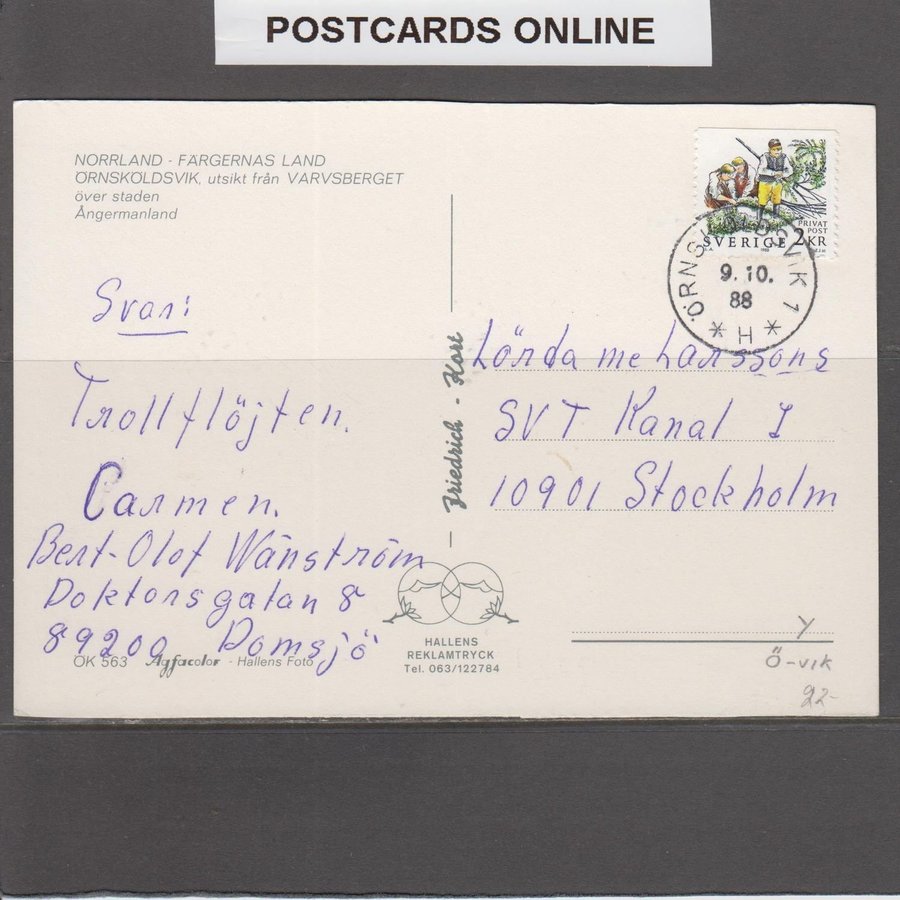 POSTCARDS ONLINE
NORRLAND - FÄRGERNAS LAND
ÖRNSKÖLDSVIK, utsikt från VARVSBERGET
över staden
Ångermanland
PRIVAT
POST
SVERIGE 2KR
ÖRNSKÖLDSVIK 1
9.10.
88
* H *
Svar:
Trollflöjten.
Carmen.
Bert-Olof Wänström
Doktorsgatan 8
89200 Domsjö
Friedrich - Kort
Lörda me Larssons
SVT Kanal I
10901 Stockholm
ÖK 563 Agfacolor - Hallens Foto
HALLENS
REKLAMTRYCK
Tel. 063/122784
Y
Ö-vik
22-